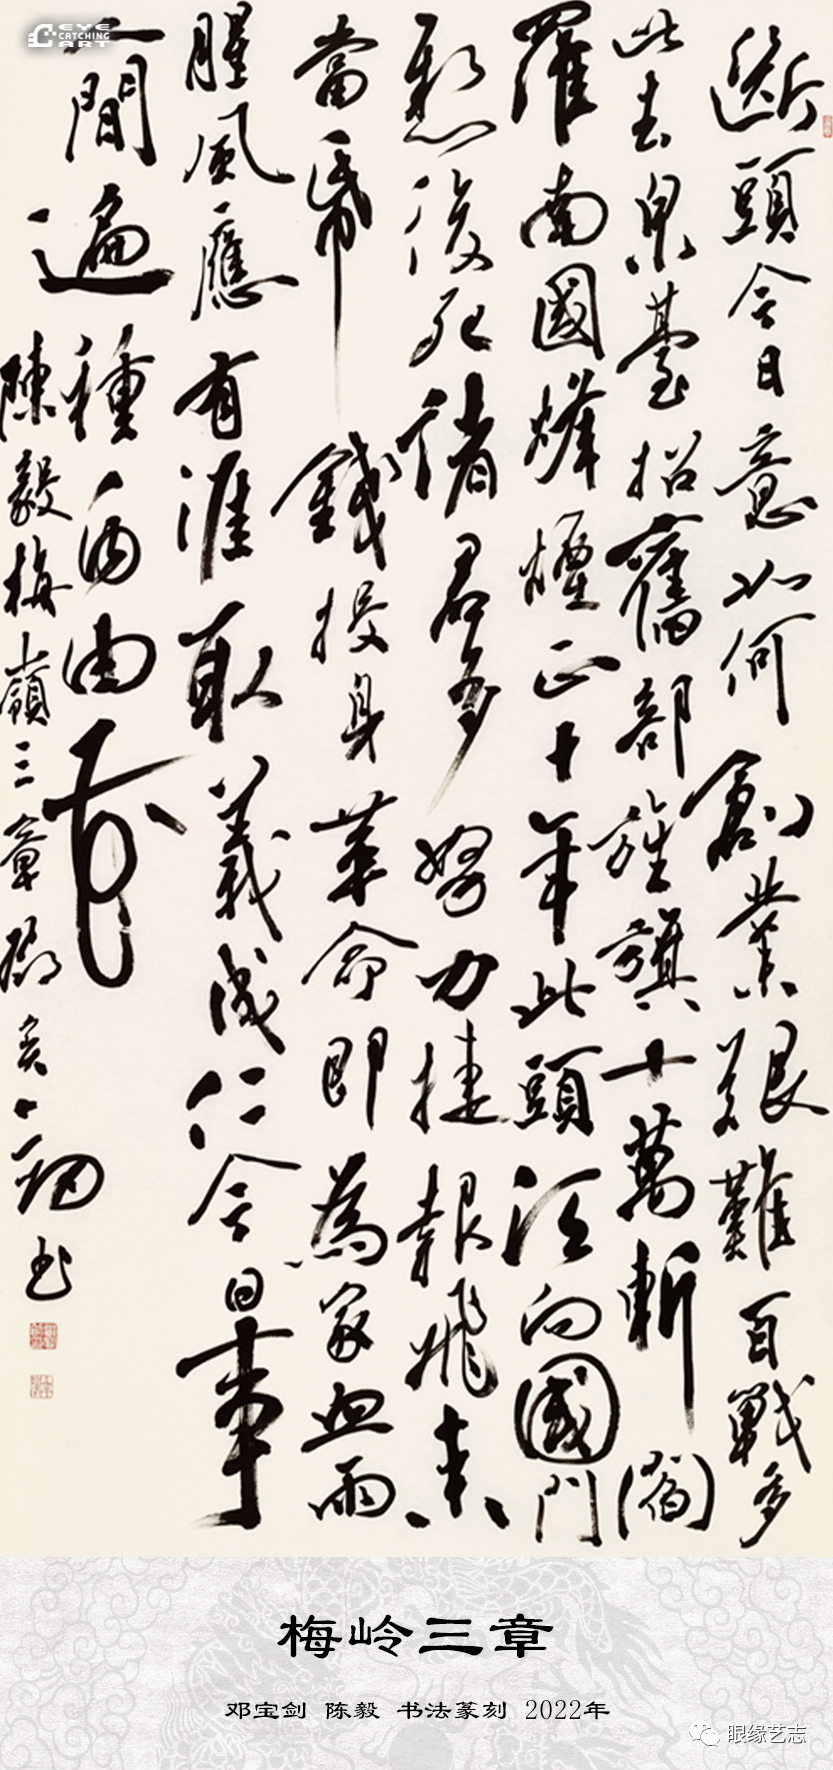 斷頭今日意如何創業艱難百戰多
此去泉臺招舊部旌旗十萬斬閻
羅南國烽煙正十年此頭須向國門
懸後死諸君多努力捷報飛來
當紙錢投身革命即為家血雨
腥風應有涯取義成仁今日事
人間遍種自由花
陳毅梅嶺三章鄧書
EYE
CATCHING
ART
梅岭三章
邓宝剑 陈毅 书法篆刻 2022年
眼缘艺志